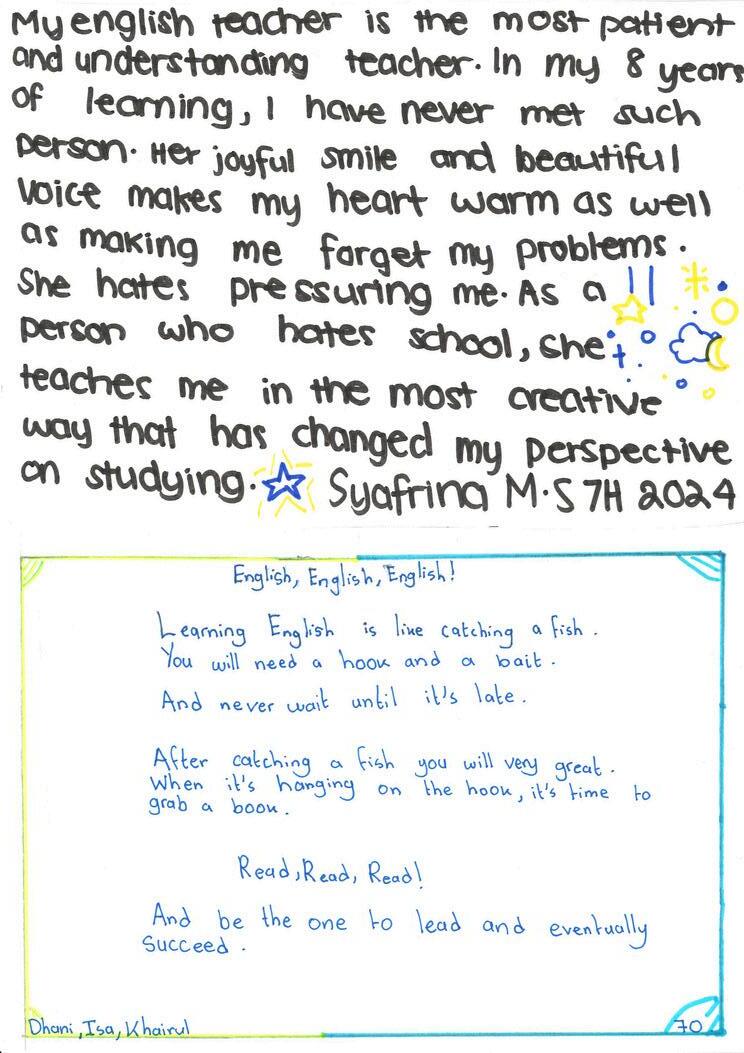 My english teacher is the most patient
and understanding teacher. In my 8 years
of learning, I have never met such
person. Her joyful smile and beautiful
voice makes my heart warm as well
as making me forget my problems.
She hates pressuring me. As a
person who hates school, she
teaches me in the most creative
way that has changed my perspective
on studying. Syafrina M.S 7H 2024
English, English, English!
Learning English is like catching a fish.
You will need a hook and a bait.
And never wait until it's late.
After catching a fish you will very great.
When it's hanging on the hook, it's time to
grab a book.
Read, Read, Read!
And be the one to lead and eventually
succeed.
Dhani, Isa, Khairul
70